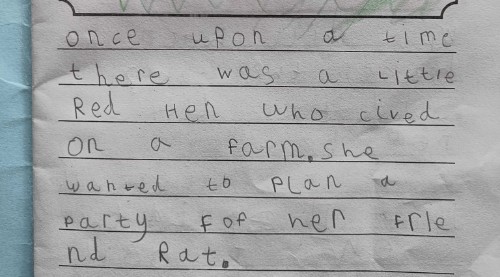 once upon a time
there was a Little
Red Hen who cived
on a farm. she
wanted to plan a
party fof her frie
nd Rat.